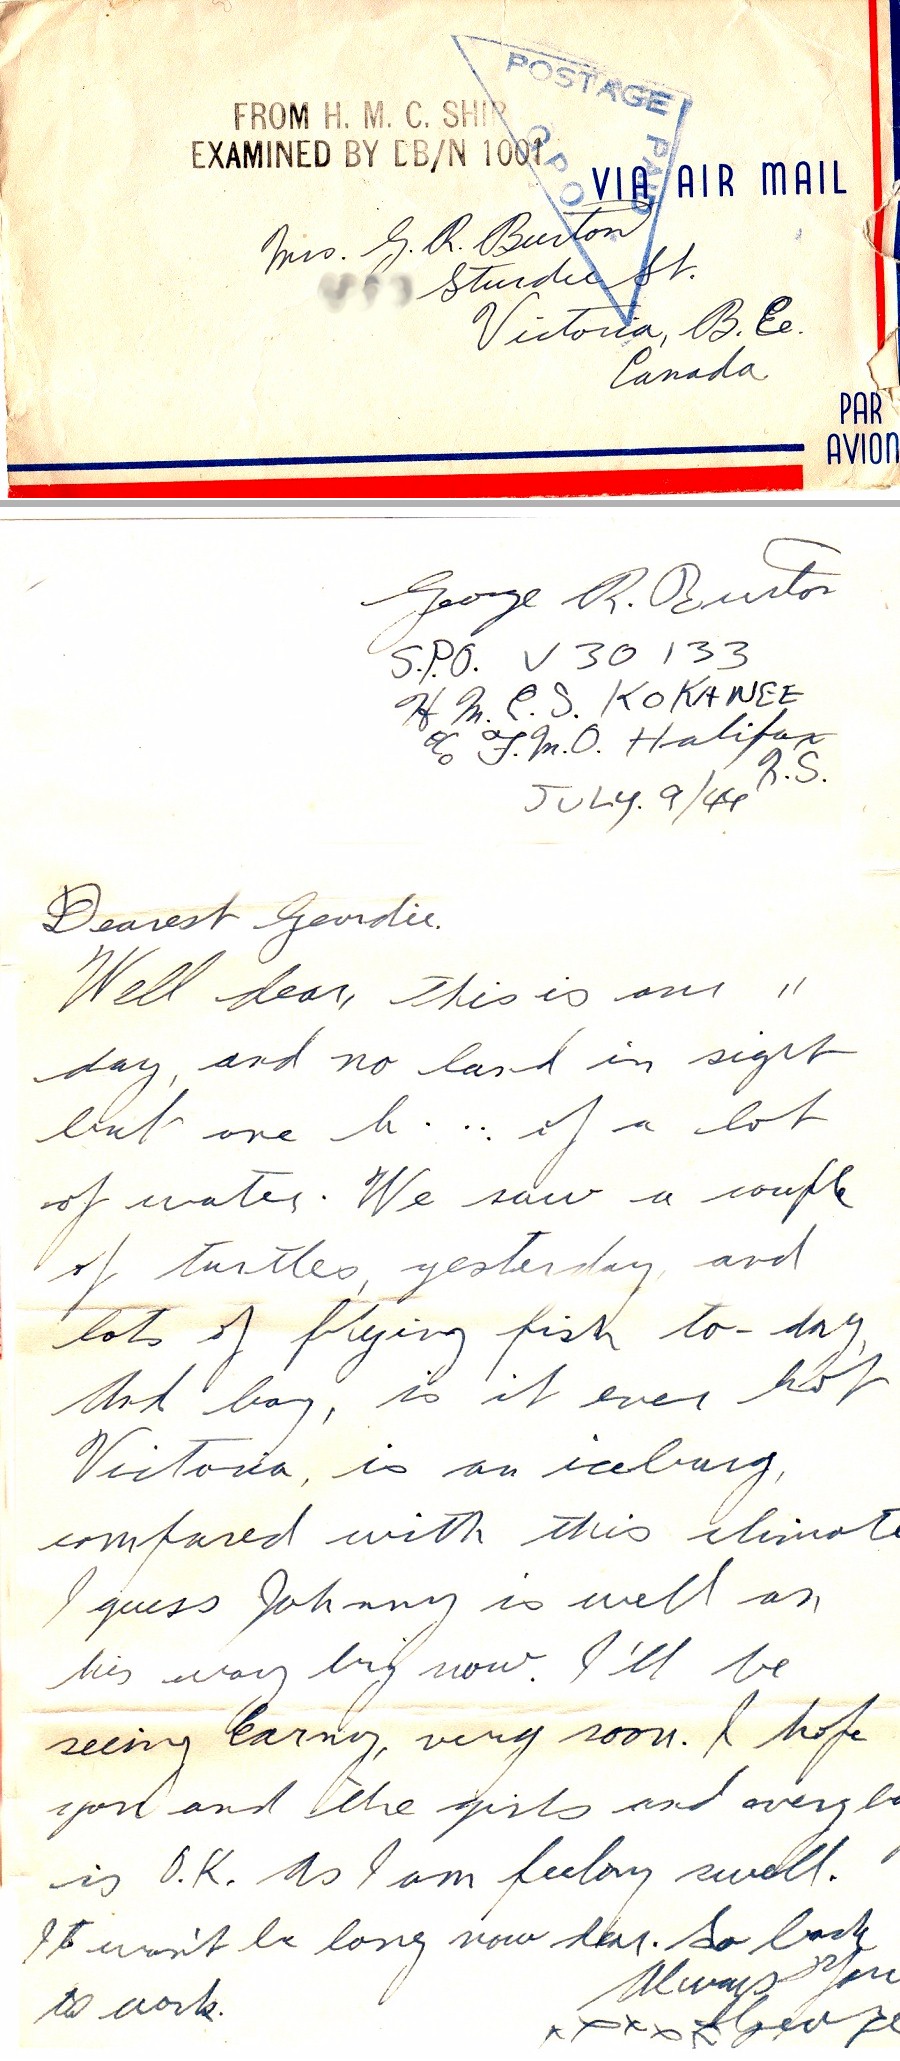 POSTAGE
PAID
G.P.O
FROM H. M. C. SHIP
EXAMINED BY DB/N 1001
VIA AIR MAIL
Mrs. G. R. Burton
Sturdee St.
Victoria, B.C.
Canada
PAR
AVION
George R. Burton
S.P.O. V 30 133
H.M.C.S. KOKANEE
c/o F.M.O. Halifax
N.S.
JULY. 9/44
Dearest Geordie.
Well dear, this is our 11
day, and no land in sight
but one h. ... of a lot
of water. We saw a couple
of turtles, yesterday, and
lots of flying fish to-day,
And boy, is it ever hot
Victoria, is an iceburg,
compared with this climate
I guess Johnny is well on
his way big now. I'll be
seeing very soon. I hope
you and the girls and everybo
is O.K. As I am feeling swell.
It won't be long now dear. So back
to work.
Always Your
xxxxx George